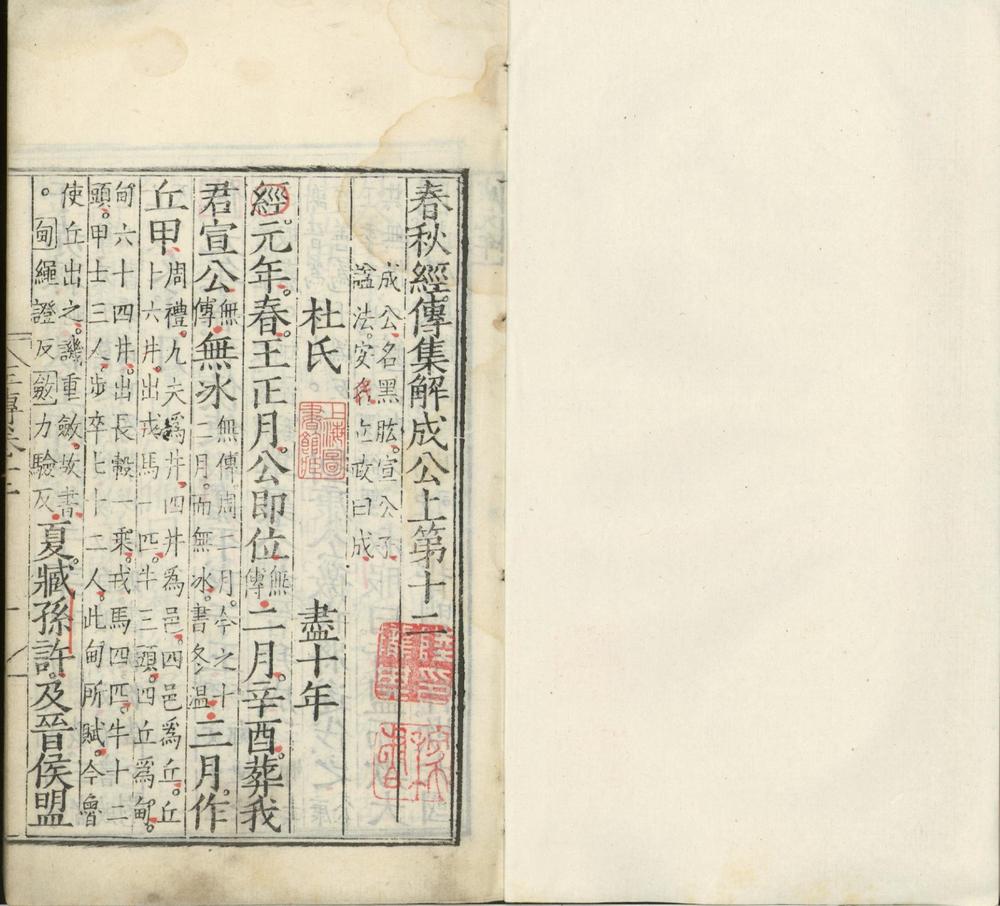 春秋經傳集解成公上第十二
成公名黑肱宣公子
諡法安民立政曰成
杜氏 盡十年
上海圖書館藏
經元年春王正月公即位無傳二月辛酉葬我
君宣公無傳無冰無傳周二月今之十二月而無冰書冬溫三月作
丘甲周禮九夫爲井四井爲邑四邑爲丘丘
十六井出戎馬一匹牛三頭四丘爲甸
甸六十四井出長轂一乘戎馬四匹牛十二
頭甲士三人步卒七十二人此甸所賦今魯
使丘出之譏重斂故書
。甸繩證反斂力驗反夏臧孫許及晉侯盟